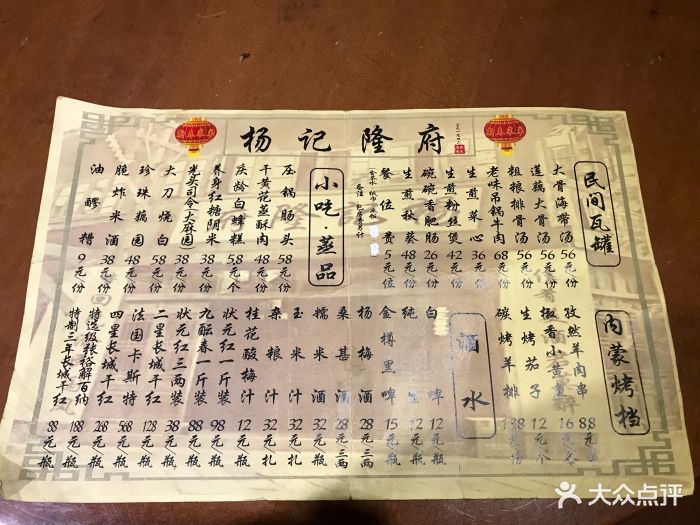 杨记隆府
新春快乐
新春快乐
民间瓦罐
大骨海带汤 56元/份
莲藕大骨汤 56元/份
粗粮排骨汤 56元/份
老味吊锅牛肉 68元/份
生煎菜心 36元/份
生煎粉丝煲 42元/份
碗碗香肥肠 26元/份
生煎秋葵 52元/份
餐位费 5元/位
小吃·蒸品
压锅肠头 58元/份
干黄花蒸酥肉 48元/份
庆龄白蜂糕 5元/个
养身红糖阴米 38元/份
光头司令(大麻园)
大刀烧白 58元/份
珍珠藕园 48元/份
脆炸米酒 38元/份
油醪糟 9元/份
内蒙烤档
孜然羊肉串 88元
椒香小黄鱼 16元
生烤茄子 12元/个
碳烤羊排 138元/份
酒水
白啤 12元/瓶
纯生 12元/瓶
金樽黑啤 15元/瓶
杨梅酒 28元/三两
桑葚酒 28元/三两
糯米酒 32元/瓶
玉米汁 32元/扎
杂粮汁 32元/扎
桂花酸梅汁 12元/瓶
状元红一斤装 98元/瓶
九酝春一斤装 88元/瓶
状元红三两装 38元/瓶
二星长城干红 128元/瓶
法国卡斯特 568元/瓶
四星长城干红 268元/瓶
特选级张裕解百纳 188元/瓶
特制三年长城干红 88元/瓶
大众点评